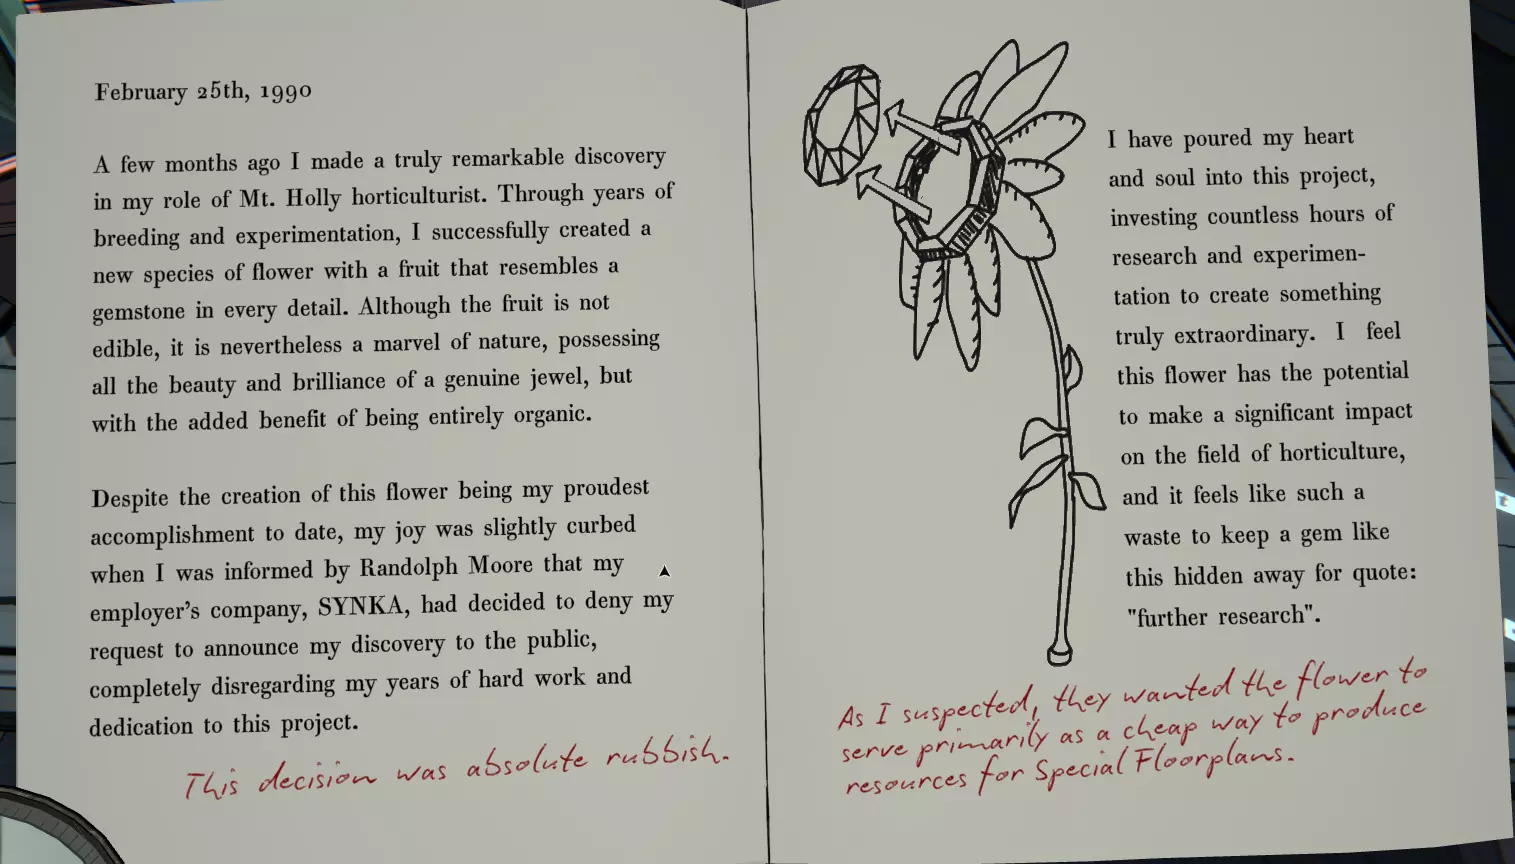 February 25th, 1990
A few months ago I made a truly remarkable discovery
in my role of Mt. Holly horticulturist. Through years of
breeding and experimentation, I successfully created a
new species of flower with a fruit that resembles a
gemstone in every detail. Although the fruit is not
edible, it is nevertheless a marvel of nature, possessing
all the beauty and brilliance of a genuine jewel, but
with the added benefit of being entirely organic.
Despite the creation of this flower being my proudest
accomplishment to date, my joy was slightly curbed
when I was informed by Randolph Moore that my
employer's company, SYNKA, had decided to deny my
request to announce my discovery to the public,
completely disregarding my years of hard work and
dedication to this project.
This decision was absolute rubbish.
I have poured my heart
and soul into this project,
investing countless hours of
research and experimen-
tation to create something
truly extraordinary. I feel
this flower has the potential
to make a significant impact
on the field of horticulture,
and it feels like such a
waste to keep a gem like
this hidden away for quote:
"further research".
As I suspected, they wanted the flower to
serve primarily as a cheap way to produce
resources for Special Floorplans.